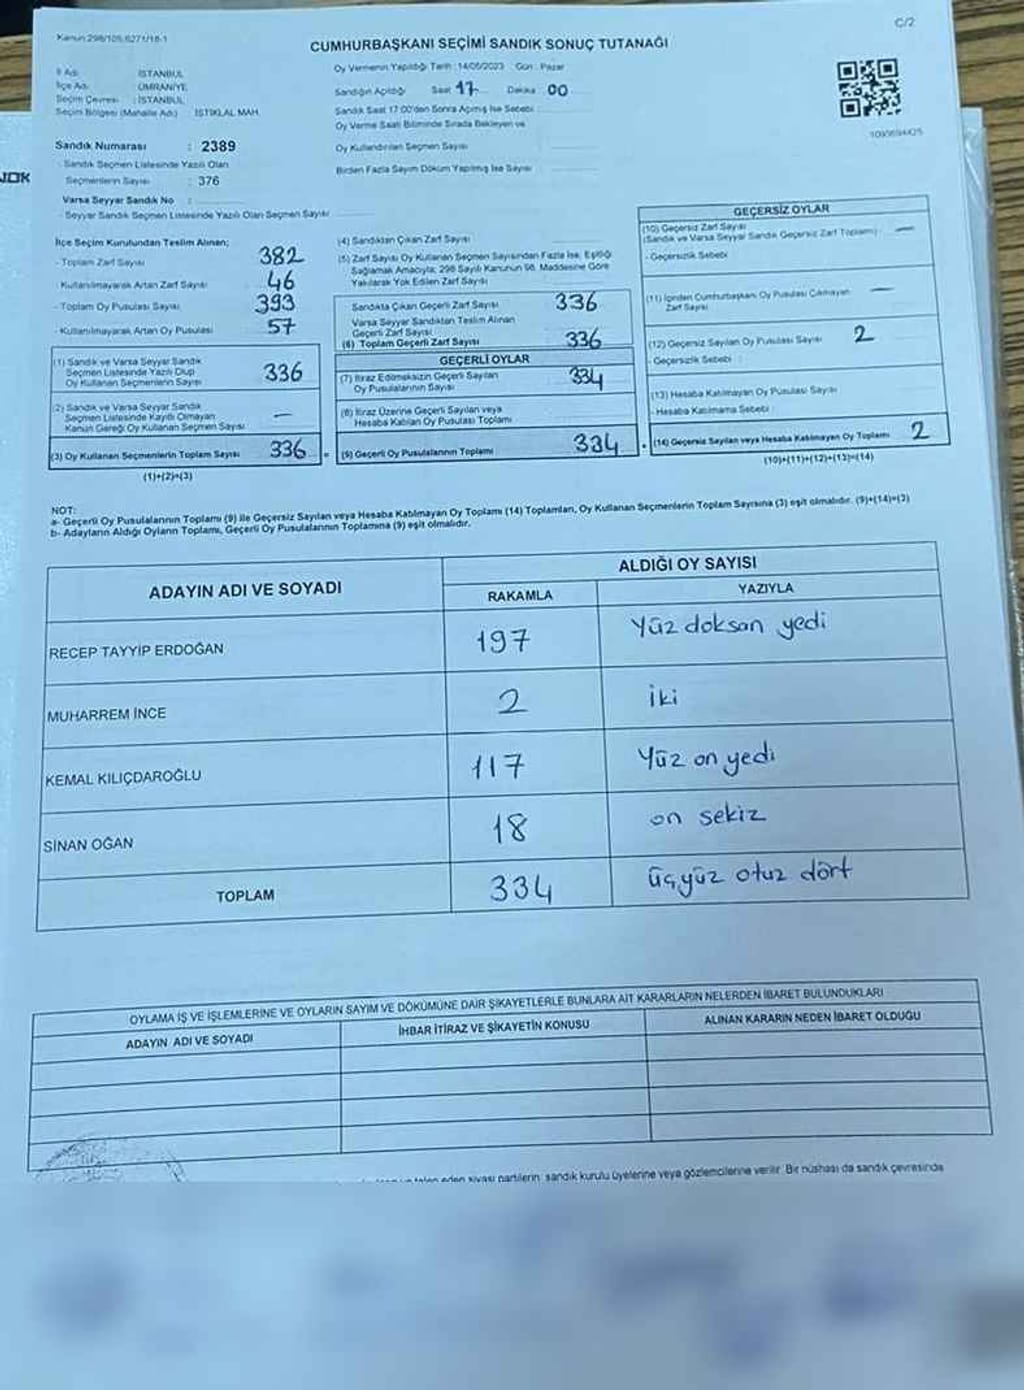 C/2
Kanun:298/105,6271/18-1
CUMHURBAŞKANI SEÇİMİ SANDIK SONUÇ TUTANAĞI
İl Adı : İSTANBUL
İlçe Adı : ÜMRANİYE
Seçim Çevresi : İSTANBUL
Seçim Bölgesi (Mahalle Adı) : İSTİKLAL MAH.
Oy Vermenin Yapıldığı Tarih : 14/05/2023 Gün : Pazar
Sandığın Açıldığı Saat 17 Dakika 00
Sandık Saat 17:00'den Sonra Açılmış İse Sebebi :
Oy Verme Saati Bitiminde Sırada Bekleyen ve
Oy Kullandırılan Seçmen Sayısı
Birden Fazla Sayım Döküm Yapılmış İse Sayısı
Sandık Numarası : 2389
- Sandık Seçmen Listesinde Yazılı Olan
Seçmenlerin Sayısı : 376
Varsa Seyyar Sandık No :
- Seyyar Sandık Seçmen Listesinde Yazılı Olan Seçmen Sayısı
İlçe Seçim Kurulundan Teslim Alınan;
- Toplam Zarf Sayısı 382
- Kullanılmayarak Artan Zarf Sayısı 46
- Toplam Oy Pusulası Sayısı 393
- Kullanılmayarak Artan Oy Pusulası 57
(1) Sandık ve Varsa Seyyar Sandık
Seçmen Listesinde Yazılı Olup
Oy Kullanan Seçmenlerin Sayısı 336
(2) Sandık ve Varsa Seyyar Sandık
Seçmen Listesinde Kayıtlı Olmayan
Kanun Gereği Oy Kullanan Seçmen Sayısı —
(3) Oy Kullanan Seçmenlerin Toplam Sayısı 336
(1)+(2)=(3)
(4) Sandıktan Çıkan Zarf Sayısı
(5) Zarf Sayısı Oy Kullanan Seçmen Sayısından Fazla İse, Eşitliği
Sağlamak Amacıyla; 298 Sayılı Kanunun 98. Maddesine Göre
Yakılarak Yok Edilen Zarf Sayısı
Sandıkta Çıkan Geçerli Zarf Sayısı 336
Varsa Seyyar Sandıktan Teslim Alınan
Geçerli Zarf Sayısı
(6) Toplam Geçerli Zarf Sayısı 336
GEÇERLİ OYLAR
(7) İtiraz Edilmeksizin Geçerli Sayılan
Oy Pusulalarının Sayısı 334
(8) İtiraz Üzerine Geçerli Sayılan veya
Hesaba Katılan Oy Pusulası Toplamı
(9) Geçerli Oy Pusulalarının Toplamı 334
GEÇERSİZ OYLAR
(10) Geçersiz Zarf Sayısı
(Sandık ve Varsa Seyyar Sandık Geçersiz Zarf Toplamı) —
- Geçersizlik Sebebi :
(11) İçinden Cumhurbaşkanı Oy Pusulası Çıkmayan
Zarf Sayısı —
(12) Geçersiz Sayılan Oy Pusulası Sayısı 2
- Geçersizlik Sebebi :
(13) Hesaba Katılmayan Oy Pusulası Sayısı
- Hesaba Katılmama Sebebi :
(14) Geçersiz Sayılan veya Hesaba Katılmayan Oy Toplamı 2
(10)+(11)+(12)+(13)=(14)
NOT:
a- Geçerli Oy Pusulalarının Toplamı (9) ile Geçersiz Sayılan veya Hesaba Katılmayan Oy Toplamı (14) Toplamları, Oy Kullanan Seçmenlerin Toplam Sayısına (3) eşit olmalıdır. (9)+(14)=(3)
b- Adayların Aldığı Oyların Toplamı, Geçerli Oy Pusulalarının Toplamına (9) eşit olmalıdır.
ADAYIN ADI VE SOYADI
ALDIĞI OY SAYISI
RAKAMLA YAZIYLA
RECEP TAYYİP ERDOĞAN 197 Yüz doksan yedi
MUHARREM İNCE 2 iki
KEMAL KILIÇDAROĞLU 117 Yüz on yedi
SİNAN OĞAN 18 on sekiz
TOPLAM 334 üçyüz otuz dört
OYLAMA İŞ VE İŞLEMLERİNE VE OYLARIN SAYIM VE DÖKÜMÜNE DAİR ŞİKAYETLERLE BUNLARA AİT KARARLARIN NELERDEN İBARET BULUNDUKLARI
ADAYIN ADI VE SOYADI İHBAR İTİRAZ VE ŞİKAYETİN KONUSU ALINAN KARARIN NEDEN İBARET OLDUĞU
eden siyasi partilerin sandık kurulu üyelerine veya gözlemcilerine verilir. Bir nüshası da sandık çevresinde